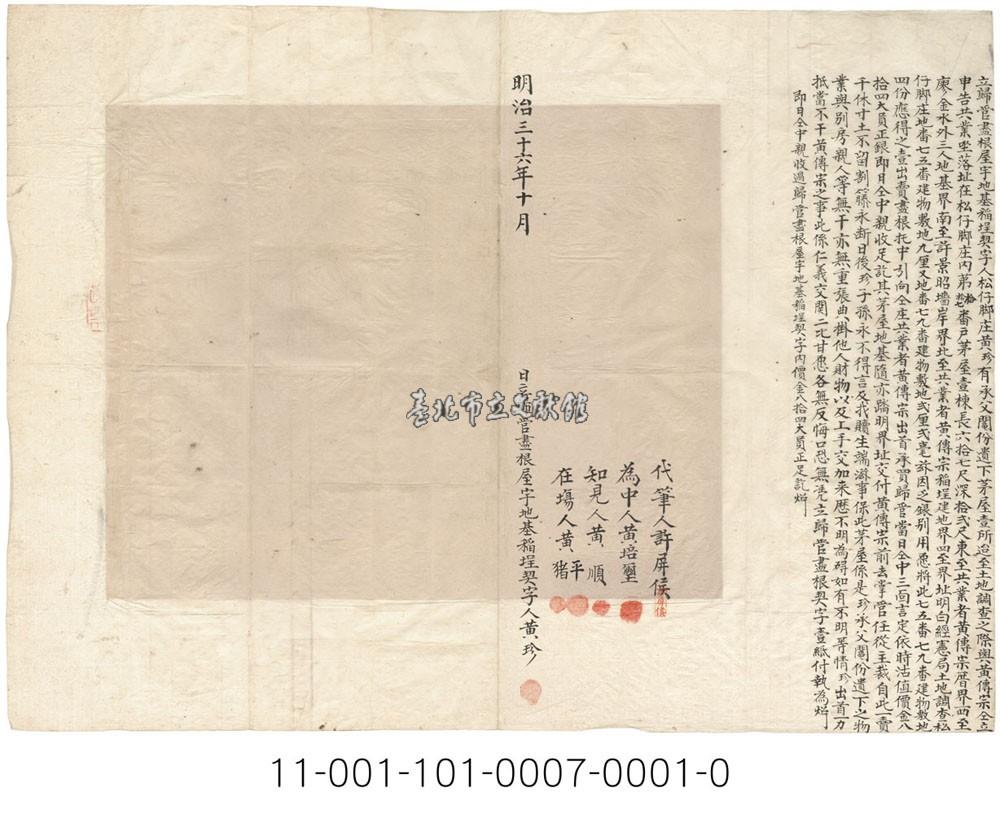 立歸管盡根屋宇地基稻埕契字人松仔脚庄黃珍有承父鬮份遺下茅屋壹所迨至土地調查之際與黃傳宗仝立
申告共業坐落址在松仔脚庄內第拾七番戶茅屋壹棟長六拾七尺深拾弍尺東至共業者黃傳宗厝界西至
廖金水外三人地基界南至許景昭墻岸界北至共業者黃傳宗稻埕建地界四至界址明白經憲局土地調查松
仔脚庄地番七五番建物敷地九厘又地番七九番建物敷地弍厘弍毫訴因乏銀別用愿將此七五番七九番建物敷地
四份應得之壹出賣盡根托中引向仝庄共業者黃傳宗出首承買歸管當日仝中三面言定依時沽值價金八
拾四大員正銀即日仝中親收足訖其茅屋地基隨亦踏明界址交付黃傳宗前去掌管任從主裁自此一賣
千休寸土不留割籐永斷日後珍子孫永不得言及找贖生端滋事保此茅屋係是珍承父鬮份遺下之物
業與別房親人等無干亦無重張典掛他人財物以及上手交加来歷不明為碍如有不明等情珍出首一力
抵當不干黃傳宗之事此係仁義交関二比甘愿各無反悔口恐無凴立歸管盡根契字壹紙付執為炤
即日仝中親收過歸管盡根屋宇地基稻埕契字內價金八拾四大員正足訖炤
代筆人許屏侯
為中人黃培壐
知見人黃順
在塲人黃平
猪
明治三十六年十月
日立歸管盡根屋宇地基稻埕契字人黃珍
臺北市立文獻館
11-001-101-0007-0001-0